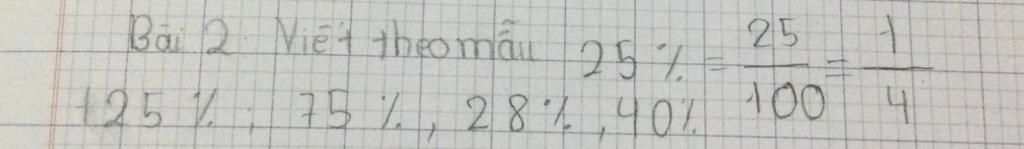 Bài 2 Viết theo mẫu 25% = 25/100 = 1/4
125%; 75%, 28%, 40%